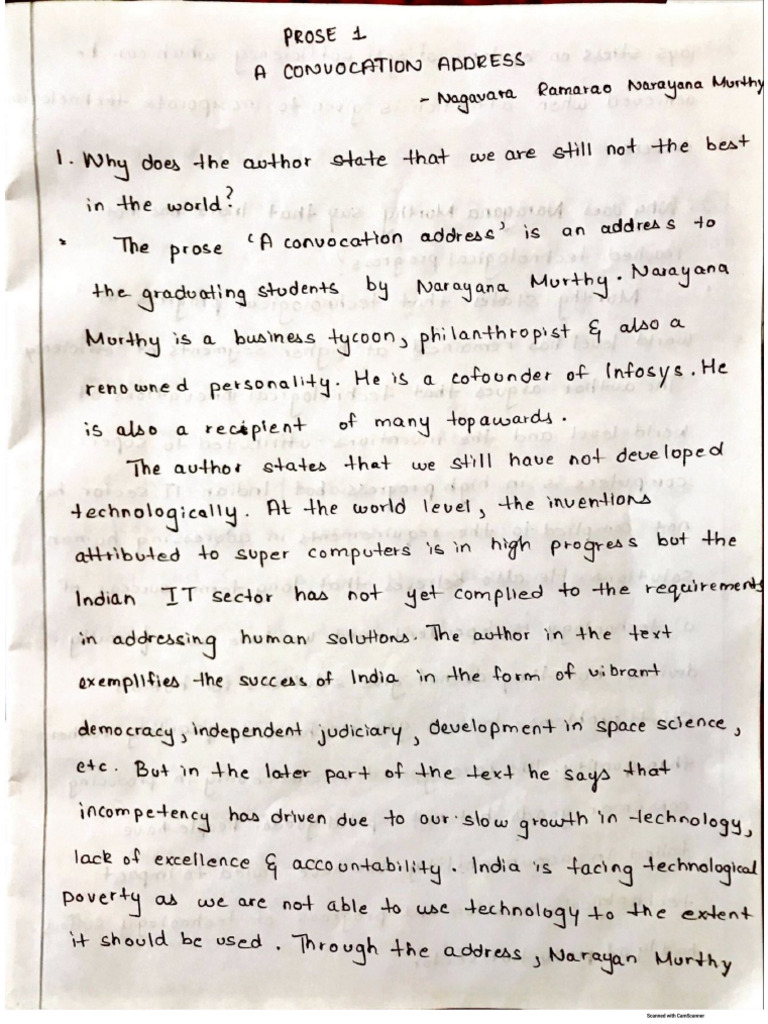 PROSE 1
A CONVOCATION ADDRESS
- Nagavara Ramarao Narayana Murthy
1. Why does the author state that we are still not the best
in the world?
The prose 'A convocation address' is an address to
the graduating students by Narayana Murthy. Narayana
Murthy is a business tycoon, philanthropist & also a
renowned personality. He is a cofounder of Infosys. He
is also a recipient of many topawards.
The author states that we still have not developed
technologically. At the world level, the inventions
attributed to super computers is in high progress but the
Indian IT sector has not yet complied to the requirements
in addressing human solutions. The author in the text
exemplifies the success of India in the form of vibrant
democracy, independent judiciary, development in space science,
etc. But in the later part of the text he says that
incompetency has driven due to our slow growth in technology,
lack of excellence & accountability. India is facing technological
poverty as we are not able to use technology to the extent
it should be used. Through the address, Narayan Murthy
Scanned with CamScanner